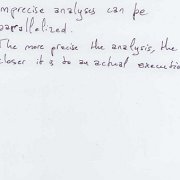 mprecise analyses can be
parallelized.
The more precise the analysis, the
closer it is to an actual executio